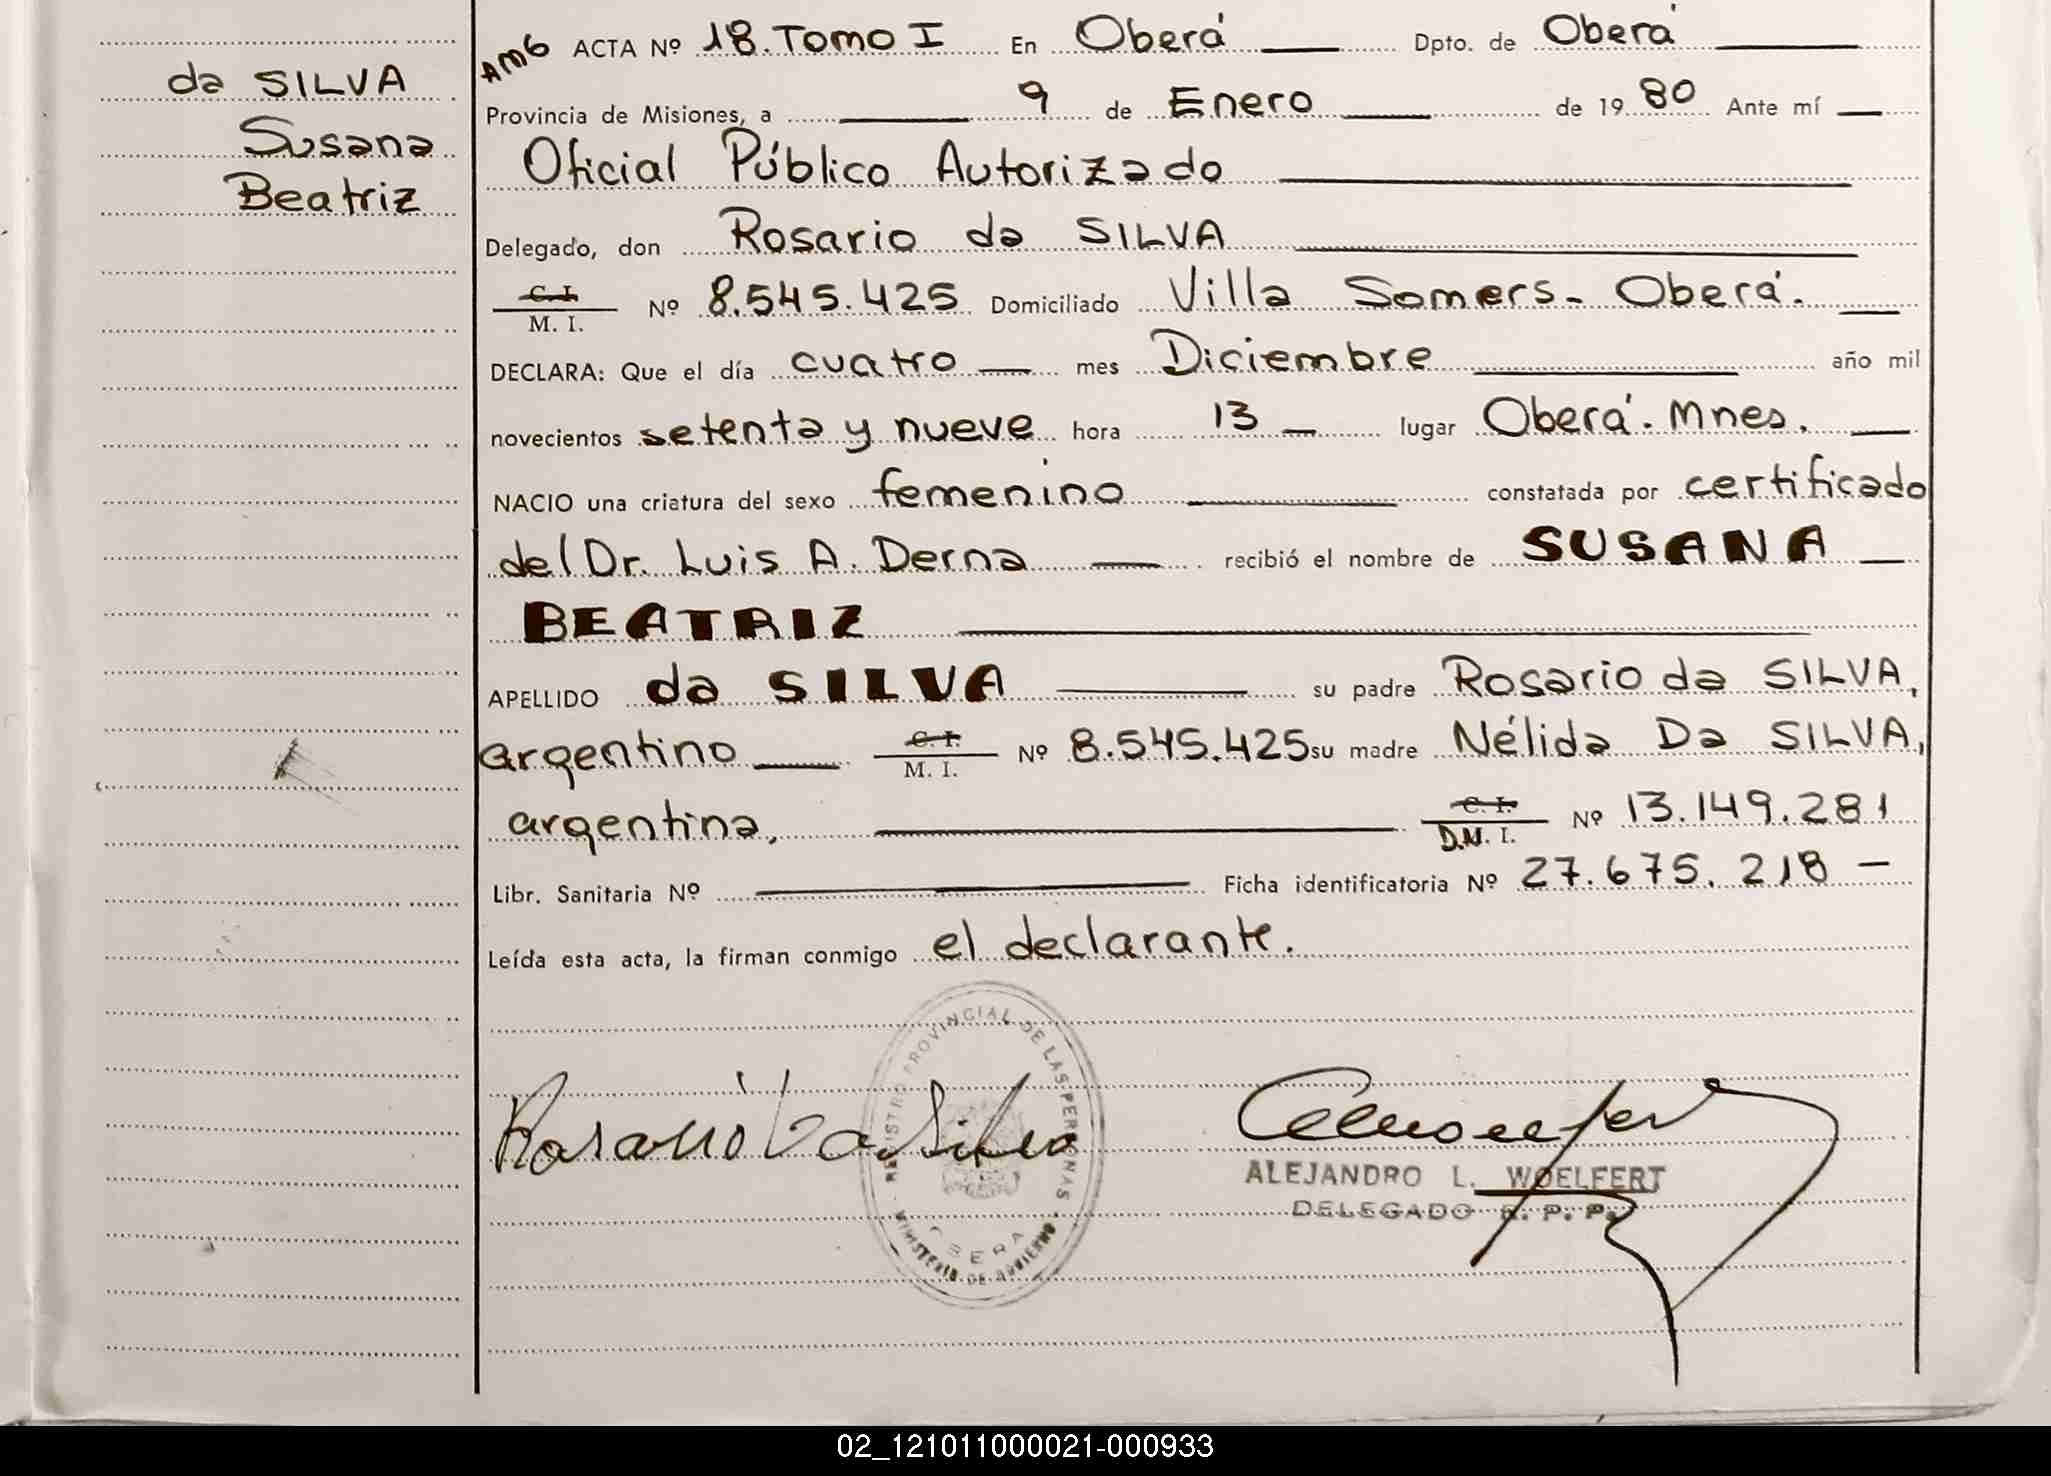 da SILVA
Susana
Beatriz
AMG ACTA Nº 18. Tomo I En Oberá Dpto. de Oberá
Provincia de Misiones, a 9 de Enero de 1980 Ante mí
Oficial Público Autorizado
Delegado, don Rosario da SILVA
C. I.
M. I. Nº 8.545.425 Domiciliado Villa Somers - Oberá.
DECLARA: Que el día cuatro mes Diciembre año mil
novecientos setenta y nueve hora 13 lugar Oberá. Mnes.
NACIO una criatura del sexo femenino constatada por certificado
del Dr. Luis A. Derna recibió el nombre de SUSANA
BEATRIZ
APELLIDO da SILVA su padre Rosario da SILVA,
argentino C. I.
M. I. Nº 8.545.425 su madre Nélida Da SILVA,
argentina, C. I.
D.N. I. Nº 13.149.281
Libr. Sanitaria Nº Ficha identificatoria Nº 27.675.218 -
Leída esta acta, la firman conmigo el declarante.
REGISTRO PROVINCIAL DE LAS PERSONAS
OBERA
MINISTERIO DE GOBIERNO
Rosario Da Silva
ALEJANDRO L. WOELFERT
DELEGADO R. P. P.
02_121011000021-000933